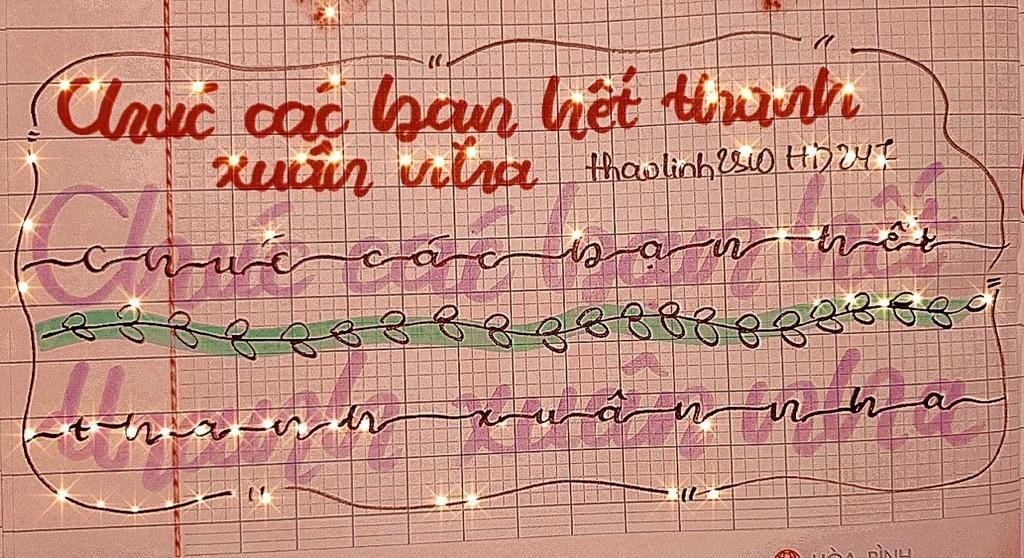 Chúc các bạn hết thanh
xuân nha
thaolinh2510 HD247
Chúc các bạn hết
Chúc các bạn hết
thanh xuân nha
thanh xuân nha
HÒA BÌNH